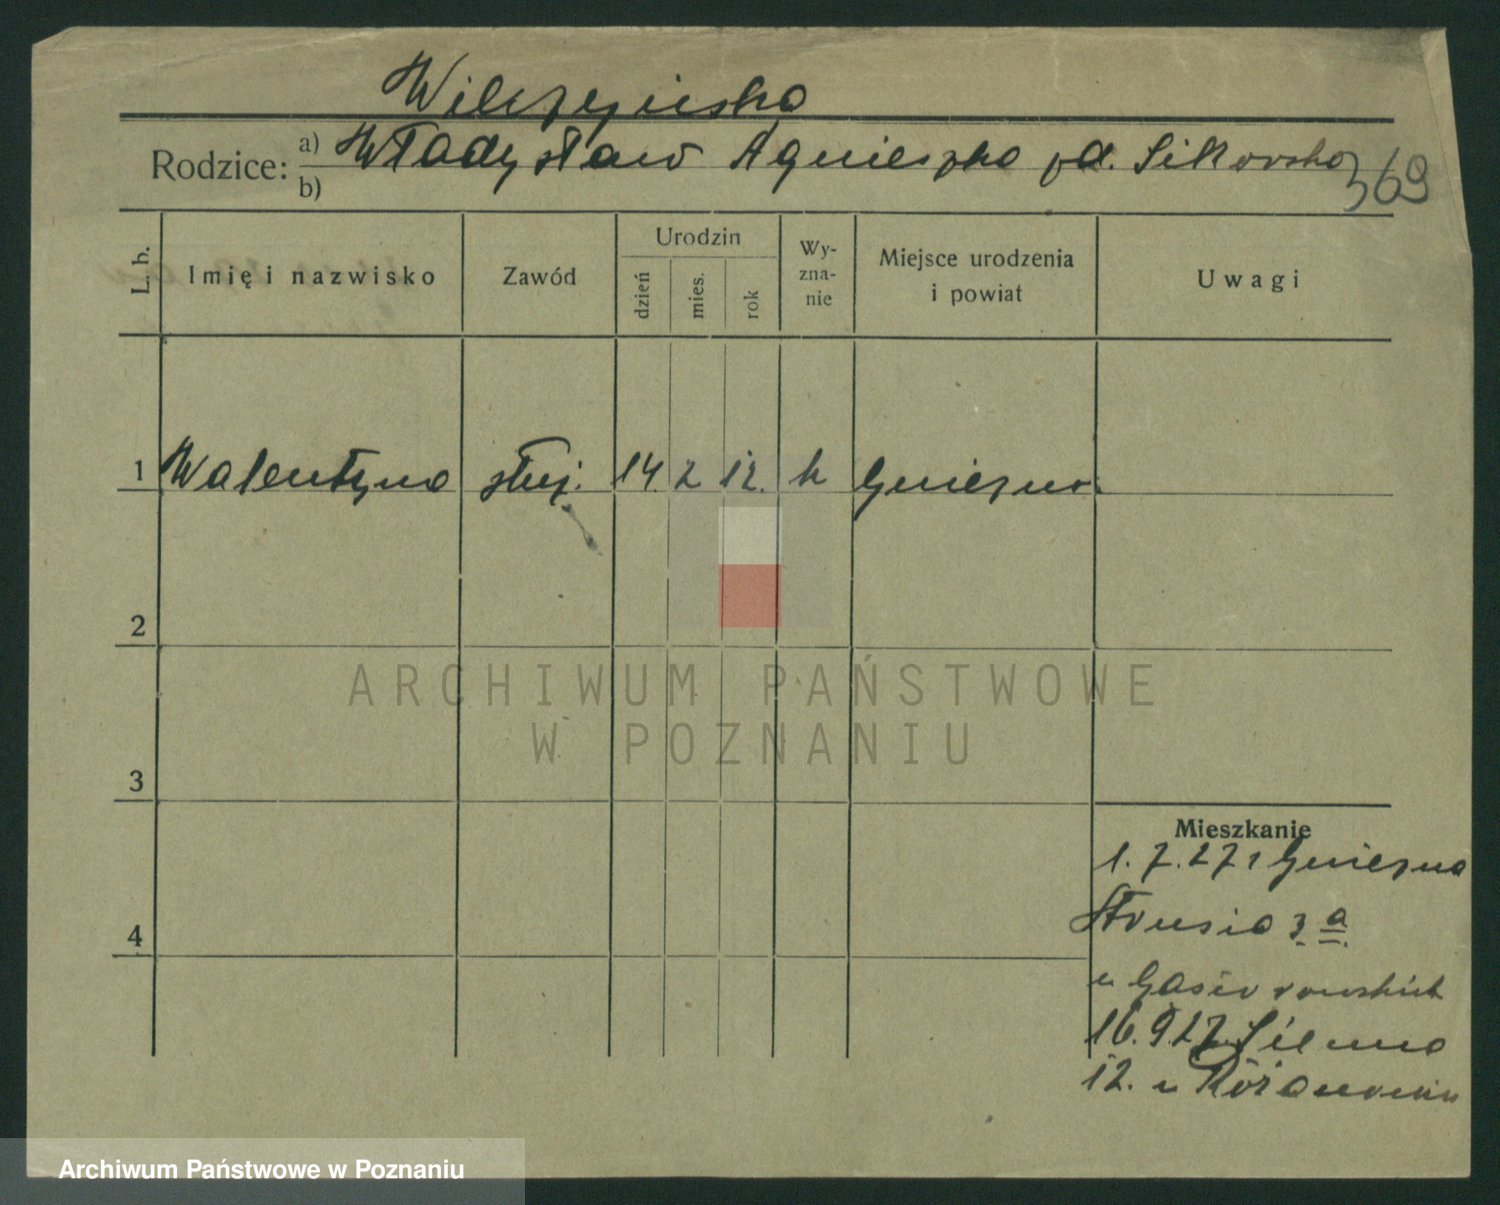 Wilczyńska
Rodzice: a) Władysław Agnieszka zd. Sikorska
b)
369
L. b.
Imię i nazwisko
Zawód
Urodzin
dzień
mies.
rok
Wy-
zna-
nie
Miejsce urodzenia
i powiat
Uwagi
1 Walentyna służ. 14. 2 12. k Gniezno.
2
3
4
Mieszkanie
1.7.27 Gniezno
Słusia 3 a
u Gąsiorowskich
16.9.27
12. u
ARCHIWUM PAŃSTWOWE
W POZNANIU
Archiwum Państwowe w Poznaniu